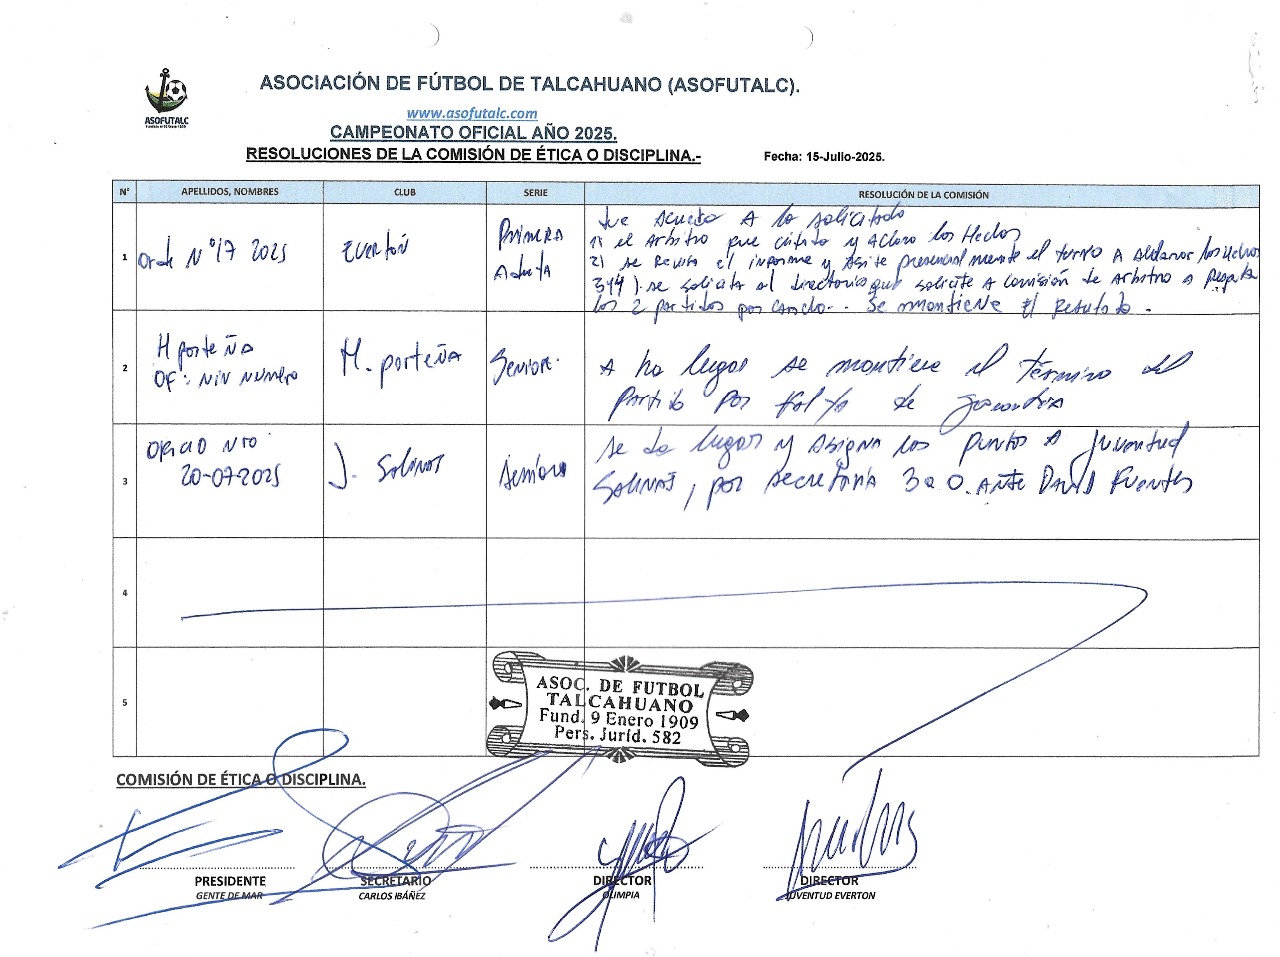 ASOCIACIÓN DE FÚTBOL DE TALCAHUANO (ASOFUTALC).
ASOFUTALC
www.asofutalc.com
CAMPEONATO OFICIAL AÑO 2025.
RESOLUCIONES DE LA COMISIÓN DE ÉTICA O DISCIPLINA.-
Fecha: 15-Julio-2025.
N° APELLIDOS, NOMBRES CLUB SERIE RESOLUCIÓN DE LA COMISIÓN
1
N°17 2025
EVERTON
Primera
Adulta
Fue Acuerdo A lo solicitado
1) el Arbitro que y Aclaro los Hechos
2) se Revisa el informe y Asiste presencialmente el turno A los Hechos
3 y 4) se solicita al Directorio que solicite a comisión de Arbitro a
los 2 partidos por cancha.. Se mantiene El Resultado.
2
H porteña
OF: NIN Numero
H. porteña
Senior.
A ha lugar se mantiene el Término del
Partido por falta de
3
Oficio Nro
20-07-2025
J. Salinas
Seniors
se da lugar y Asigna los puntos A Juventud
Salinas, por secretaria 3 a 0. Ante David Fuentes
4
5
ASOC. DE FUTBOL
TALCAHUANO
Fund. 9 Enero 1909
Pers. Juríd. 582
COMISIÓN DE ÉTICA O DISCIPLINA.
PRESIDENTE SECRETARIO DIRECTOR DIRECTOR
GENTE DE MAR CARLOS IBÁÑEZ OLIMPIA JUVENTUD EVERTON